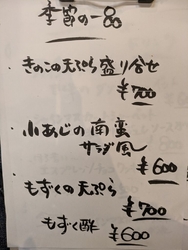 季節の一品
きのこの天ぷら盛り合せ
¥700
・小あじの南蛮
サラダ風
¥600
・もずくの天ぷら
¥700
もずく酢 ¥600